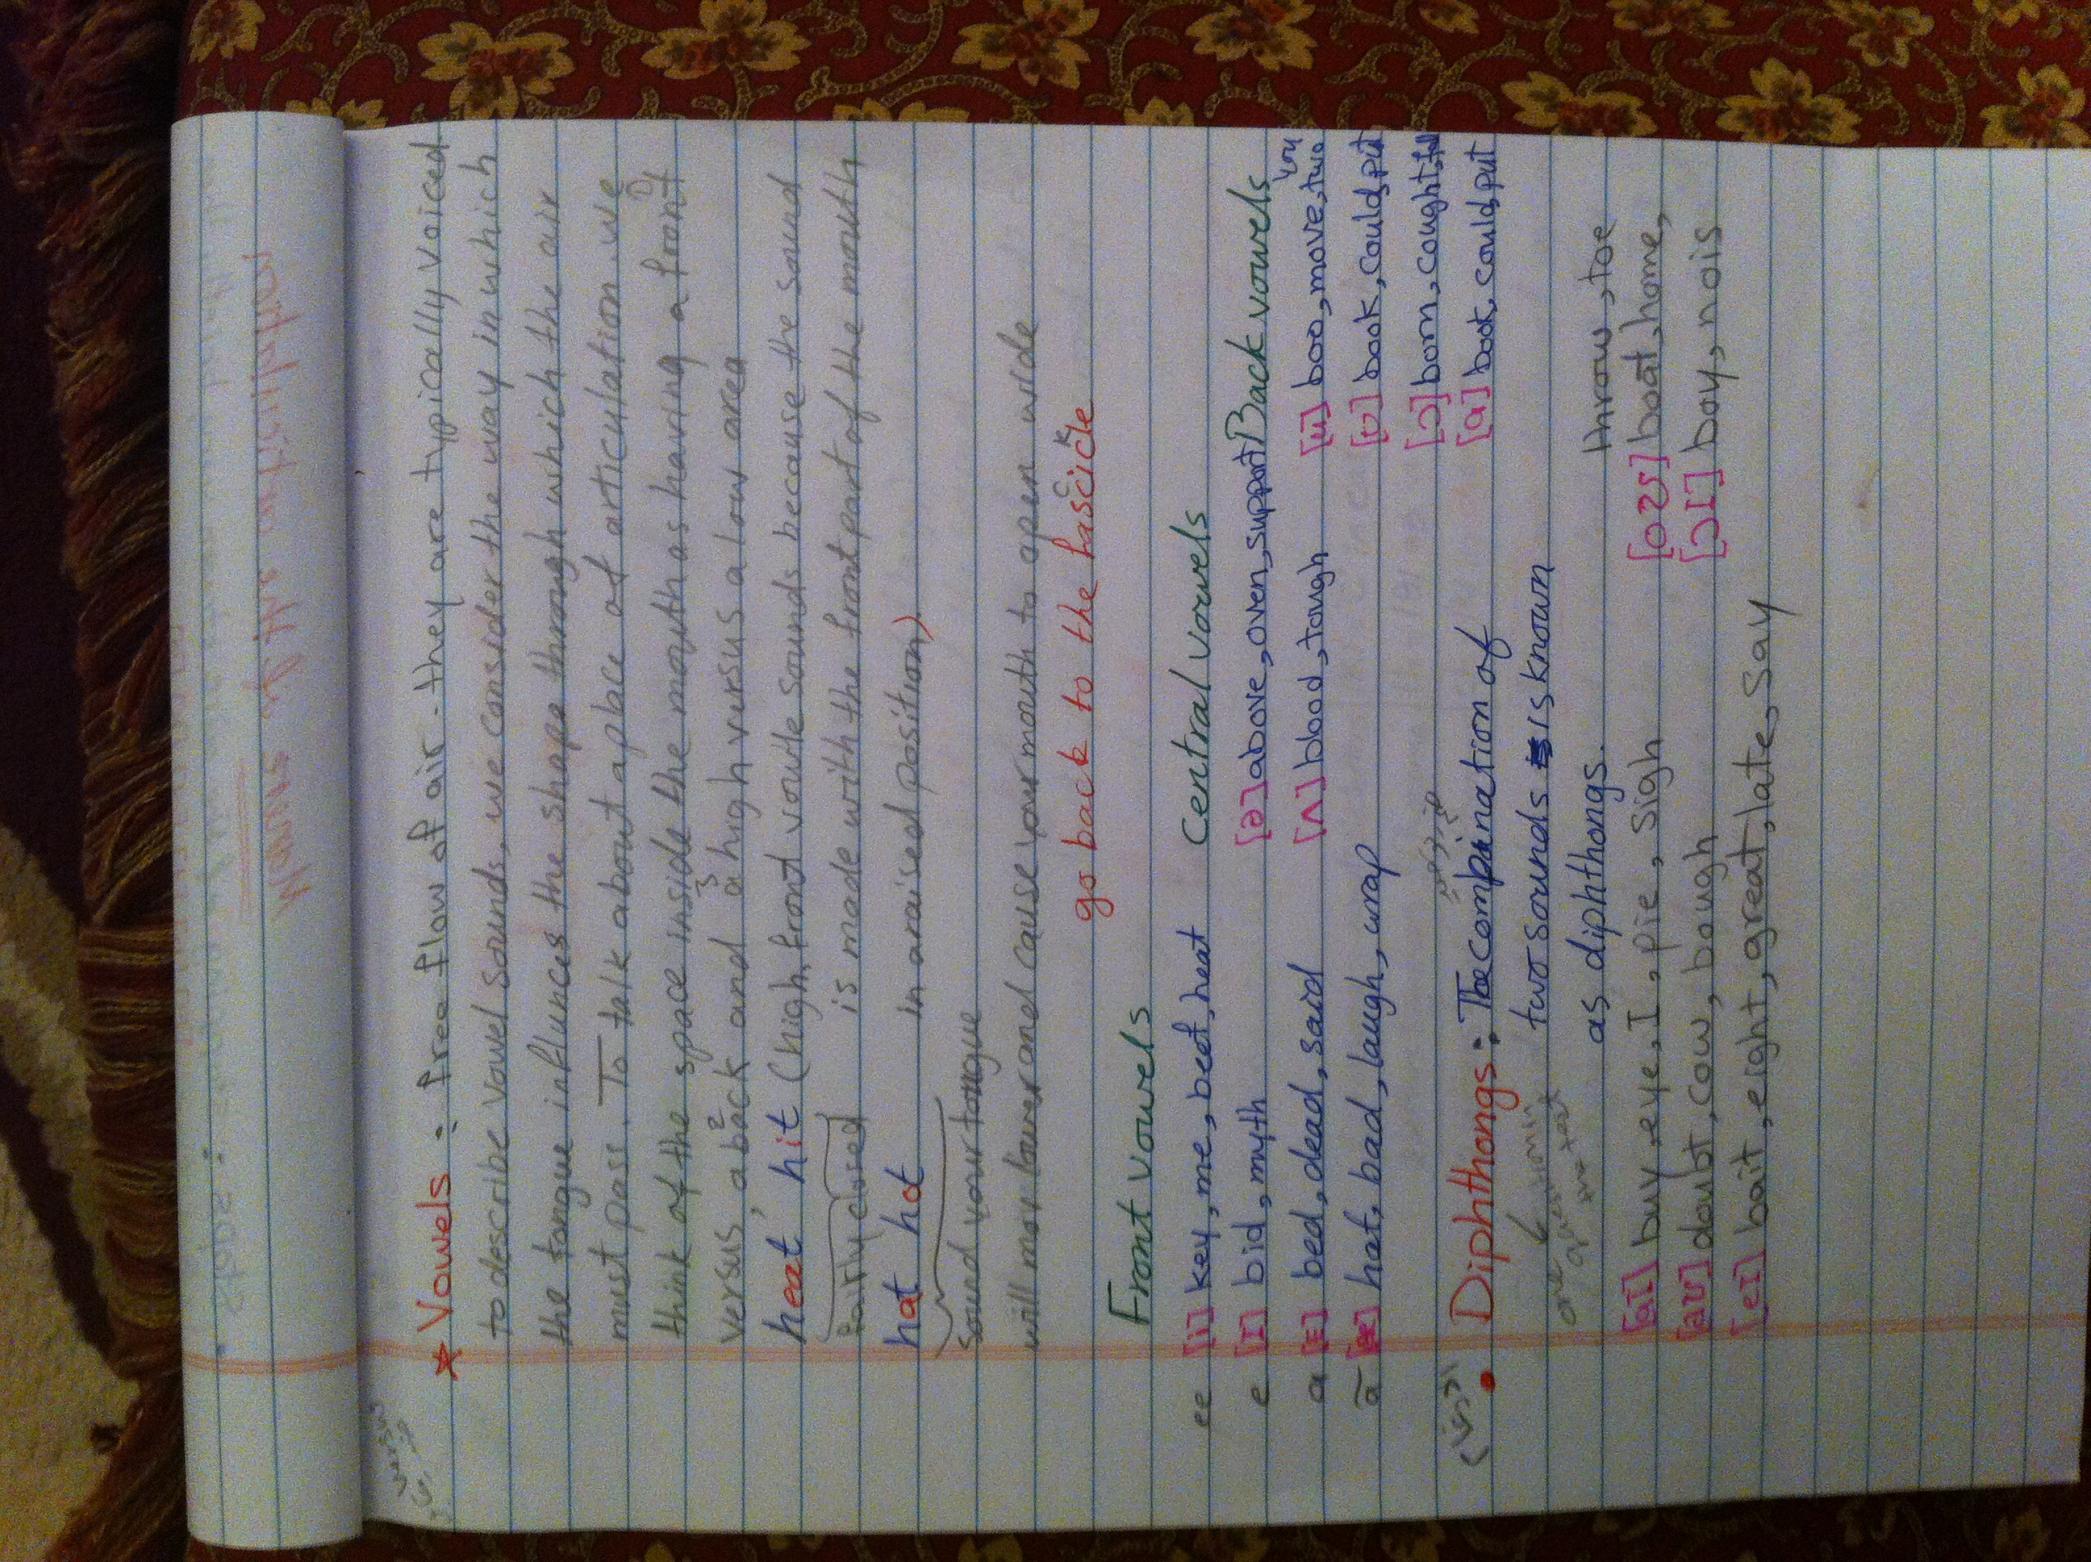 ★ Vowels : free flow of air. they are typically voiced
to describe vowel sounds, we consider the way in which
the tongue influnces the shape through which the air
must pass. To talk about a place of articulation we
think of the space inside the mouth as having a front 1
versus a back 2 and a high 3 versus a low area
heat, hit (high, front voule sounds because the sound
fairly closed is made with the front part of the mouth
hat hot in a raised position)
Sound your tongue
will mov lower and cause your mouth to open wide
go back to the fascicle
Front vowels Central vowels Back vowels
ee [i] key, me, beet, heat [ə] above, oven, support [u] boo, move, two, you
e [I] bid, myth [ʌ] blood, tough [ʊ] book, could, put
a [ɛ] bed, dead, said [ɔ] born, cought, fall
ã [æ] hat, bad, laugh, wrap [a] book, could, put
• Diphthongs : The combination of
two sounds is known
as diphthongs.
[aI] buy, eye, I, pie, sigh throw, toe
[aʊ] doubt, cow, bough [oʊ] boat, home,
[eI] bait, eight, great, late, say [ɔI] boy, nois
versus